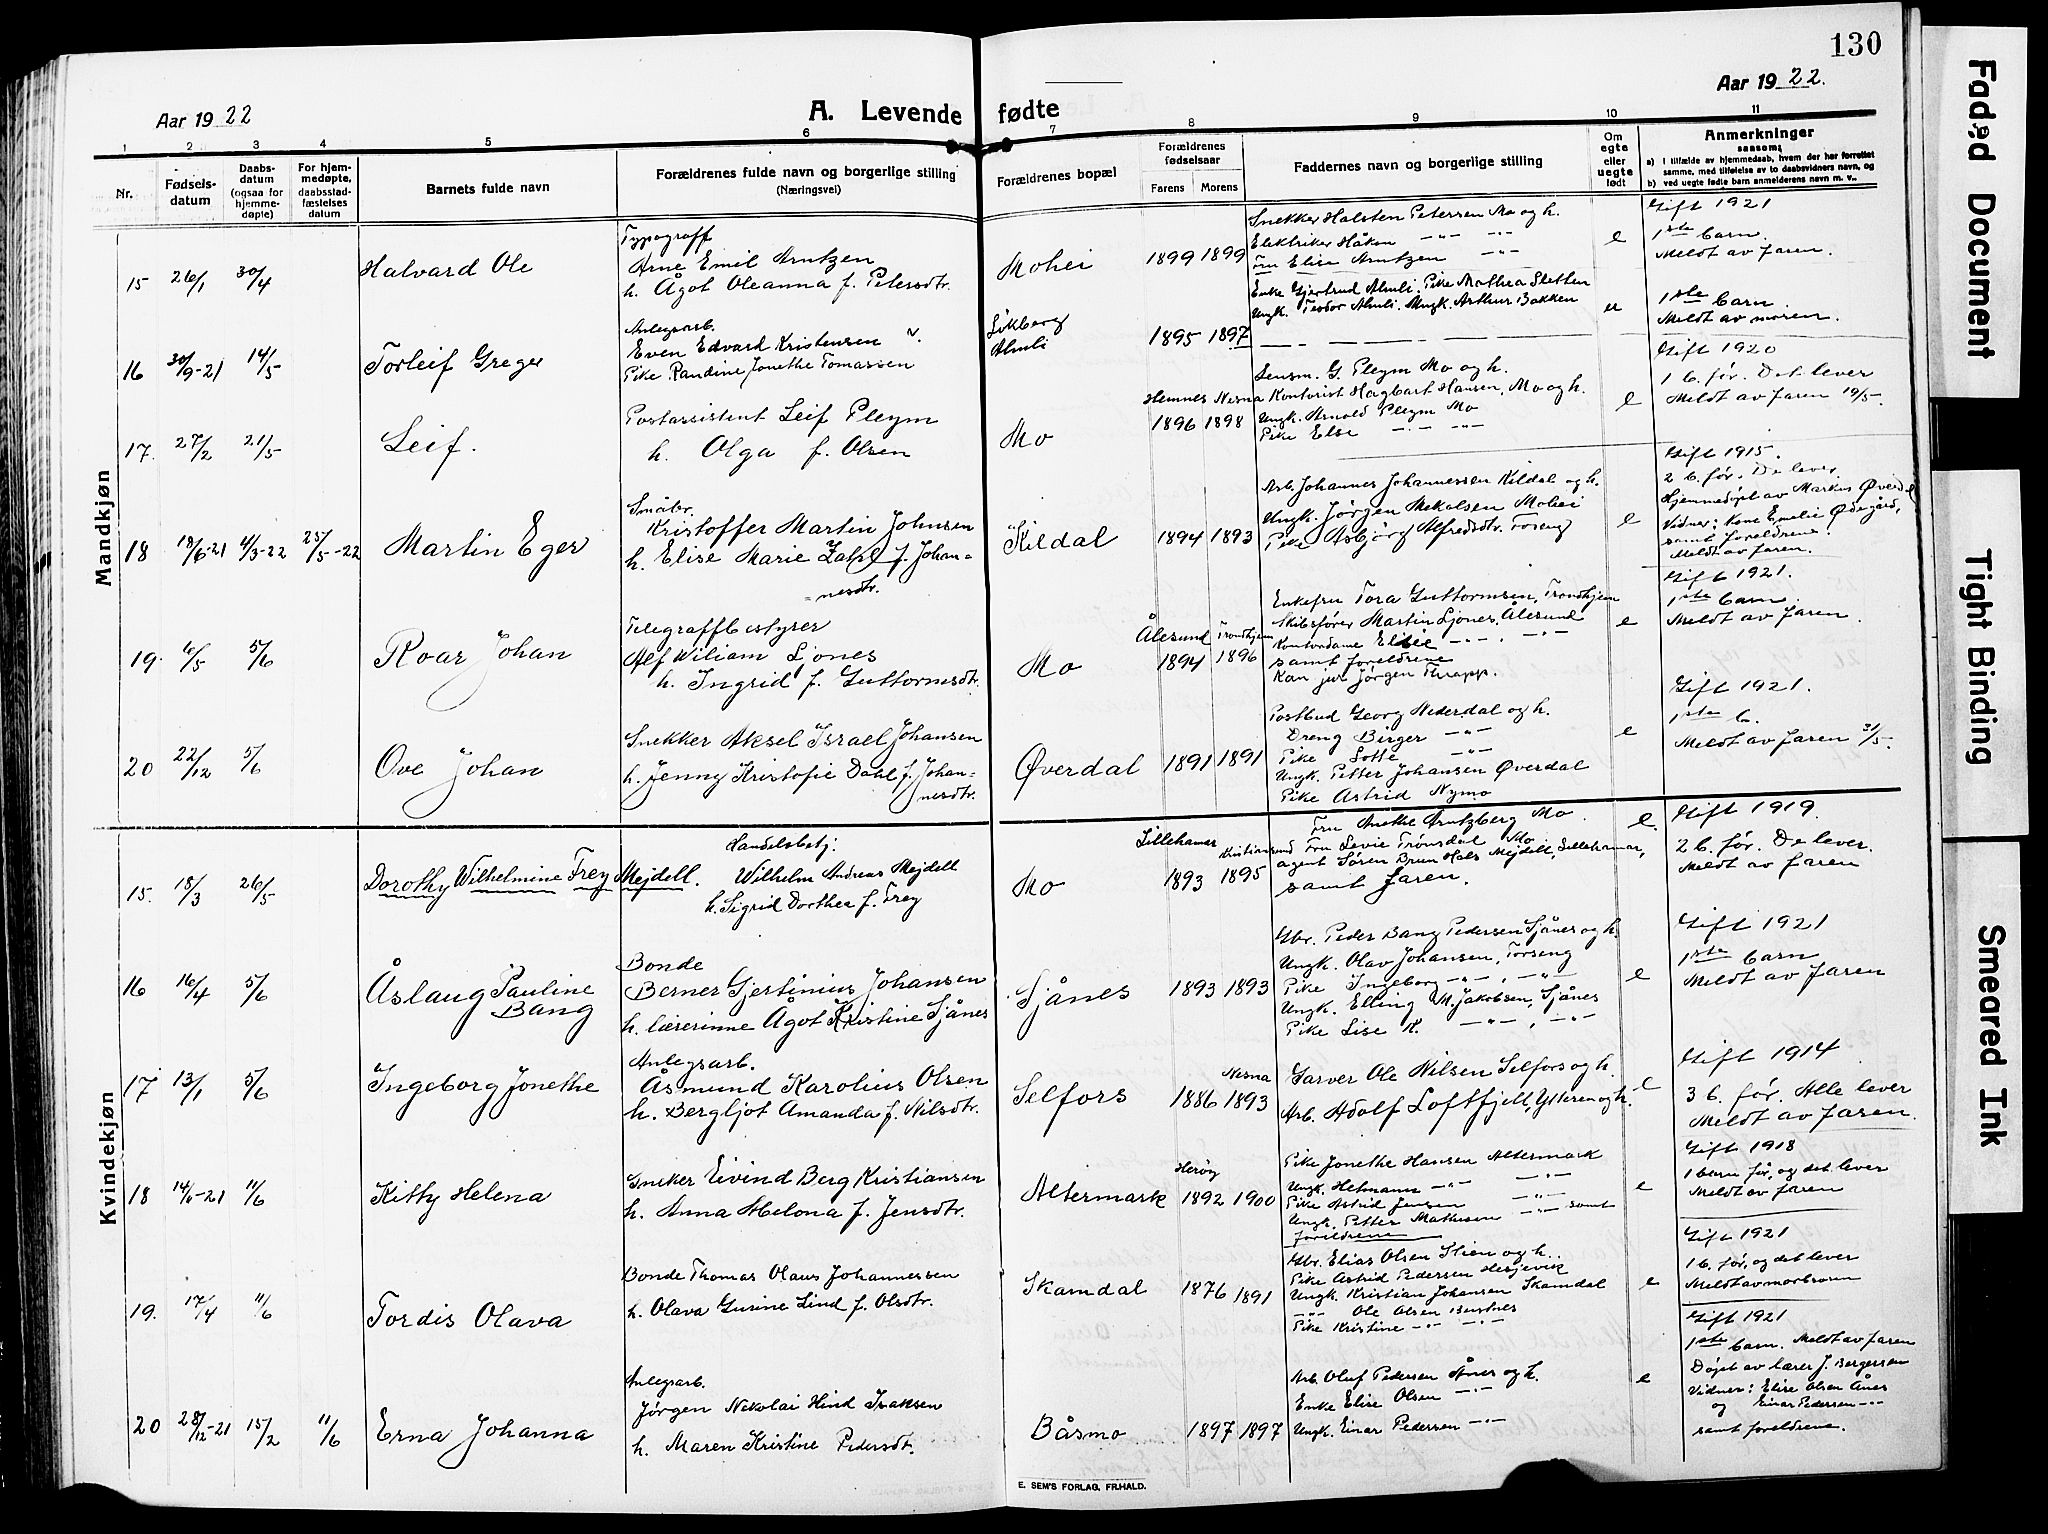 130
Aar 1922
A. Levende fødte
Aar 1922.
1 2 3 4 5 6 7 8 9 10 11
Nr.
Fødsels-
datum
Daabs-
datum
(ogsaa for
hjemme-
døpte)
For hjem-
medøpte,
daabsstad-
fæstelses
datum
Barnets fulde navn
Forældrenes fulde navn og borgerlige stilling
(Næringsvei)
Forældrenes bopæl
Forældrenes
fødselsaar
Farens Morens
Faddernes navn og borgerlige stilling
Om
egte
eller
uegte
født
Anmerkninger
saasom:
a) i tilfælde av hjemmedaab, hvem der har forrettet
samme, med tilføielse av to daabsvidners navn, og
b) ved uegte fødte barn anmelderens navn m. v..
Mandkjøn
15 26/1 30/4 Halvard Ole
Typograff
Arne Emil Arntzen
h. Ågot Oleanna f. Petersdtr.
Mohei 1899 1899
Snekker Halsten Petersen Mo og h.
Elektriker Håkon -"- -"-
Fru Elise Arntzen -"-
e
Gift 1921
1ste barn.
Meldt av faren.
16 30/9-21 14/5 Torleif Greger
Anlegsarb.
Even Edvard Kristensen
Pike Randine Jonethe Tomassen
Almli
1895 1897
Enke Gjertrud Almli. Pike Mathea Sletten
Ungk. Teodor Almli. Ungk. Arthur Bakken
ue
1ste barn.
Meldt av moren.
17. 27/2 21/5 Leif.
Postassistent Leif Pleym
h. Olga f. Olsen
Mo
Hemnes Nesna
1896 1898
Lensm. G. Pleym Mo og h.
Kontorist Hagbart Hansen, Mo og h.
Ungk. Arnold Pleym Mo
Pike Else -"- -"-
e
Gift 1920
1 b. før. Det lever
Meldt av faren 19/5.
18 18/6-21 4/3-22 25/5-22 Martin Eger
Småbr.
Kristoffer Martin Johnsen
h. Elise Marie Zahl f. Johan-
nesdtr.
Kildal 1894 1893
Arb. Johannes Johannessen Kildal og h.
Ungk. Jörgen Mekalsen Mohei
Pike Asbjörg Alfredsdtr. Forseng
e
Gift 1915.
2 b. før. De lever
Hjemmedøpt av Markus Øverdal
Vidner: Kone Emelie Ødegård,
samt foreldrene.
Meldt av faren.
19. 6/5 5/6 Roar Johan
Telegraffbestyrer
Alf Wiliam Ljones
h. Ingrid f. Guttormsdtr.
Mo
Ålesund Trondhjem
1894 1896
Enkefru Tora Guttormsen, Trondhjem
Skibsfører Martin Ljones, Ålesund
Kontordame Elsie -"-, -"-
samt foreldrene
Kan jur Jørgen Thrapp.
e
Gift 1921.
1ste barn
Meldt av faren.
20 22/12 5/6 Ove Johan
Snekker Aksel Israel Johansen
h. Jenny Kristofie Dahl f. Johan-
nesdtr.
Øverdal 1891 1891
Postbud Georg Nederdal og h.
Dreng Birger -"-
Pike Lotte -"-
Ungk. Petter Johansen Øverdal
Pike Astrid Nymo
e
Gift 1921.
1ste b.
Meldt av faren 31/5.
Kvindekjøn
15. 18/3 26/5 Dorothy Wilhelmine Frey Mejdell.
Handelsbetj:
Wilhelm Andreas Mejdell
h. Sigrid Dorthea f. Frey
Mo
Lillehamer Kristiansund
1893 1895
Fru Anethe Arntzberg Mo.
Fru Levie Trønsdal Mo
agent Sören Brun Hals Mejdell, Lillehamar,
samt faren.
e.
Gift 1919
2 b. før. De lever.
Meldt av faren
16 16/4 5/6 Åslaug Pauline
Bang
Bonde
Berner Gjertinius Johansen
h. lærerinne Ågot Kristine Sjånes
Sjånes 1893 1893
Gbr. Peder Bang Pedersen Sjånes og h.
Ungk. Olav Johansen, Forseng
Pike Ingeborg -"-, -"-
Ungk. Elling M. Jakobsen, Sjånes
Pike Lise K. -"-, -"-
e
Gift 1921
1ste barn
Meldt av faren
17 13/1 5/6 Ingeborg Jonethe
Anlegsarb.
Åsmund Karolius Olsen
h. Bergljot Amanda f. Nilsdtr.
Selfors
Nesna
1886 1893
Garver Ole Nilsen Selfors og h.
Arb. Adolf Loftfjell, Ytteren og h.
e
Gift 1914
3 b. før. Alle lever
Meldt av faren.
18 11/6 Kitty Helena
Snekker Eivind Berg Kristiansen
h. Anna Melona f. Jensdtr.
Altermark
Herøy
1892 1900
Pike Jonethe Hansen Altermark
Ungk. Helmann -"- -"-
Pike Astrid Jensen -"-
Ungk. Petter Mathisen -"- samt
foreldrene
e
Gift 1918
1 barn før, og det lever
Meldt av faren
19. 17/4 11/6 Tordis Olava
Bonde Thomas Olaus Johannessen
h. Olava Gusine Lind f. Olsdtr.
Skamdal 1876 1891
Gbr. Elias Olsen Stien og h.
Pike Astrid Pedersen Hesjevik
Ungk. Kristian Johansen Skamdal
-"- Ole Olsen Bustnes
Pike Kristine -"- -"-
e
Gift 1921
1 b. før, og det lever
Meldt av morbroren
20 28/12-21 15/2 11/6 Erna Johanna
Anlegsarb.
Jørgen Nikolai Hind Isaksen
h. Maren Kristine Pedersdt.
Båsmo 1897 1897
Arb. Oluf Pedersen Ånes og h.
Enke Elise Olsen -"-
Ungk. Einar Pedersen -"-
e
Gift 1921
1ste barn. Meldt av faren
Døpt av lærer J. Bergersen
Vidner: Elise Olsen Ånes
og Einar Pedersen -"-
samt foreldrene.
E. SEM'S FORLAG, FR.HALD.
Faded Document
Tight Binding
Smeared Ink